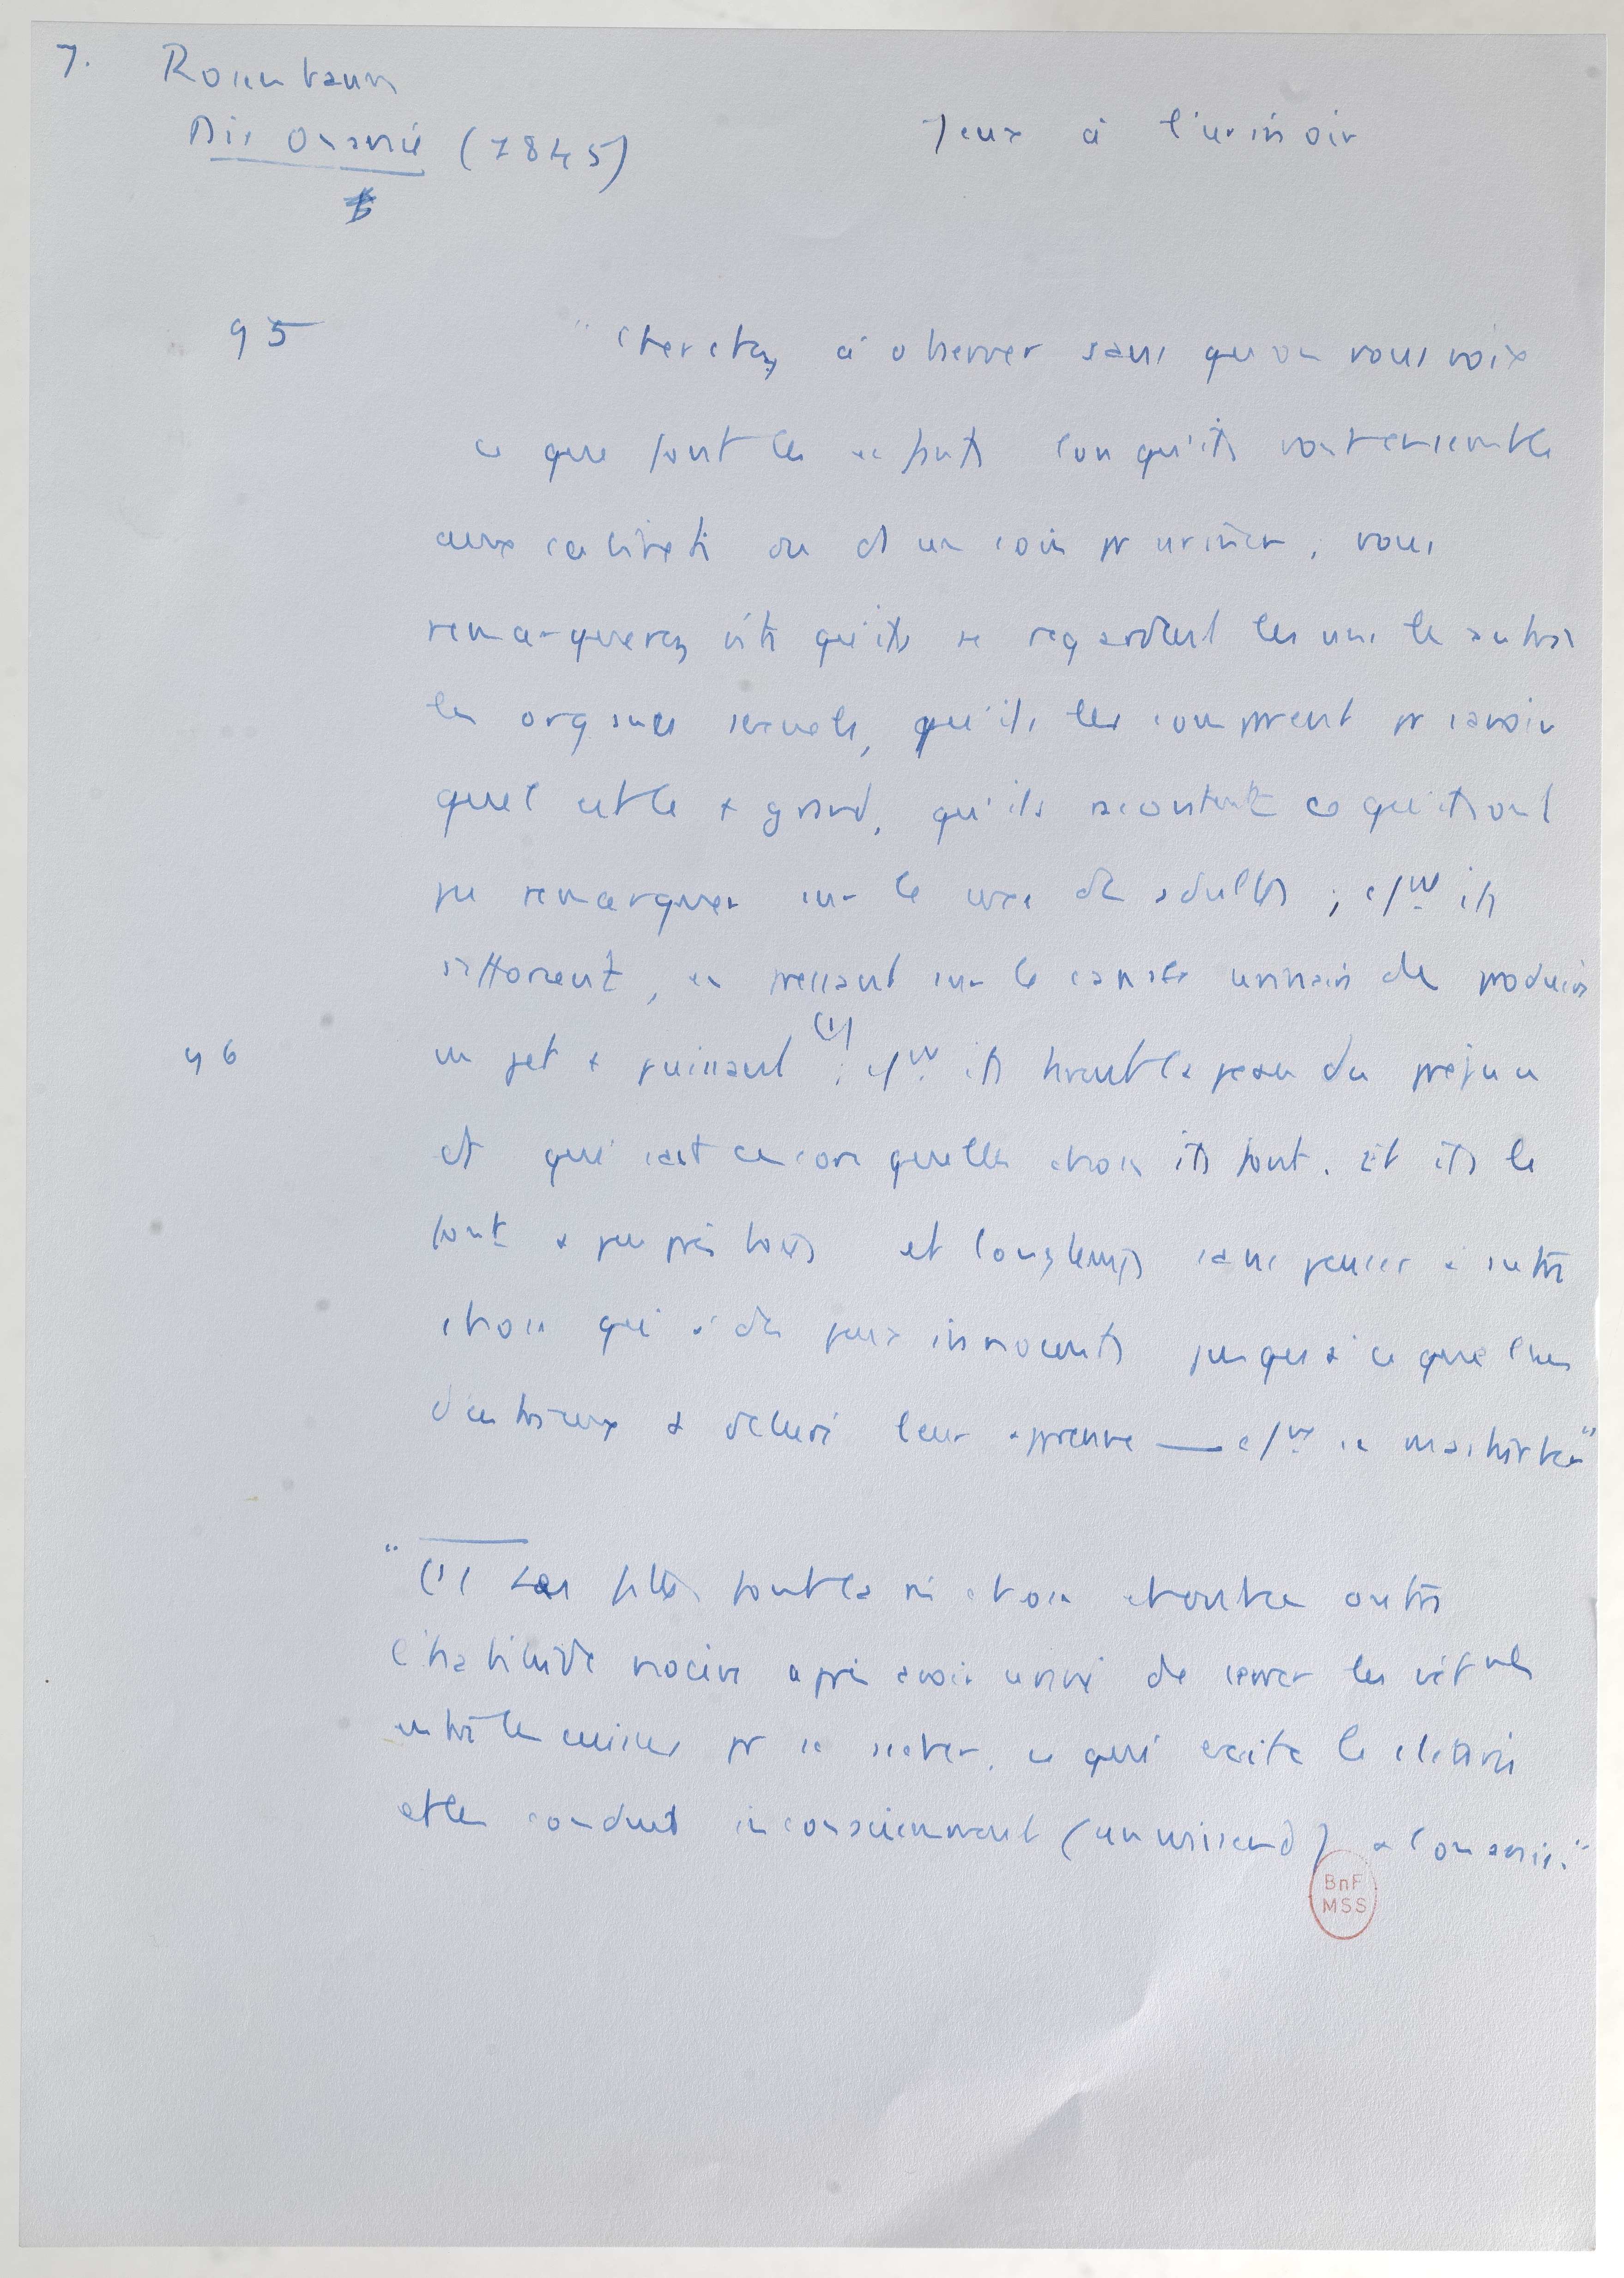 7. Rosenbaum
Die Onanie (1845)
Jeux à l'urinoir
95 "Cherchez à observer sans qu'on vous voix
ce que font les enfants lorsqu'ils vont ensemble
aux cabinets ou ds un coin pr uriner, vous
remarquerez vite qu'ils se regardent les uns les autres
les organes sexuels, qu'ils les comparent pr savoir
quel est le + grand, qu'ils racontent ce qu'ils ont
pu remarquer sur le sexe des adultes ; qqf ils
s'efforcent, en pressant sur le canal urinaire de produire
96 un jet + puissant (1) ; qqf ils tirent la peau du prépuce
et qui sait encore quelles choses ils font. Et ils le
font à peu près tous et longtemps sans penser à autre
chose qu'à des jeux innocents jusqu'à ce que l'un
d'entre eux + déluré leur apprenne — à se masturber"
"(1) Les filles font la même chose et ont en outre
l'habitude nocive après avoir uriné de serrer les vêtements
entre les cuisses pr se sécher, ce qui excite le clitoris
et les conduit inconsciemment (unwissend) à l'onanie."
BnF
MSS